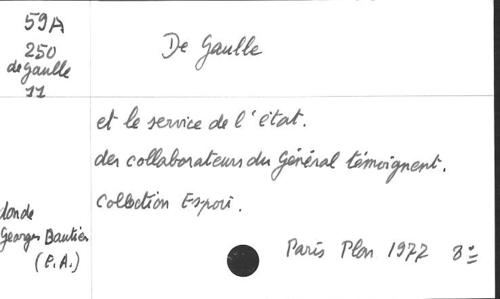 59A
250
de gaulle
11
De Gaulle
et le service de l'état.
des collaborateurs du Général témoignent.
Collection Espoir.
Georges Bautier
(E.A.)
Paris Plon 1977 8°